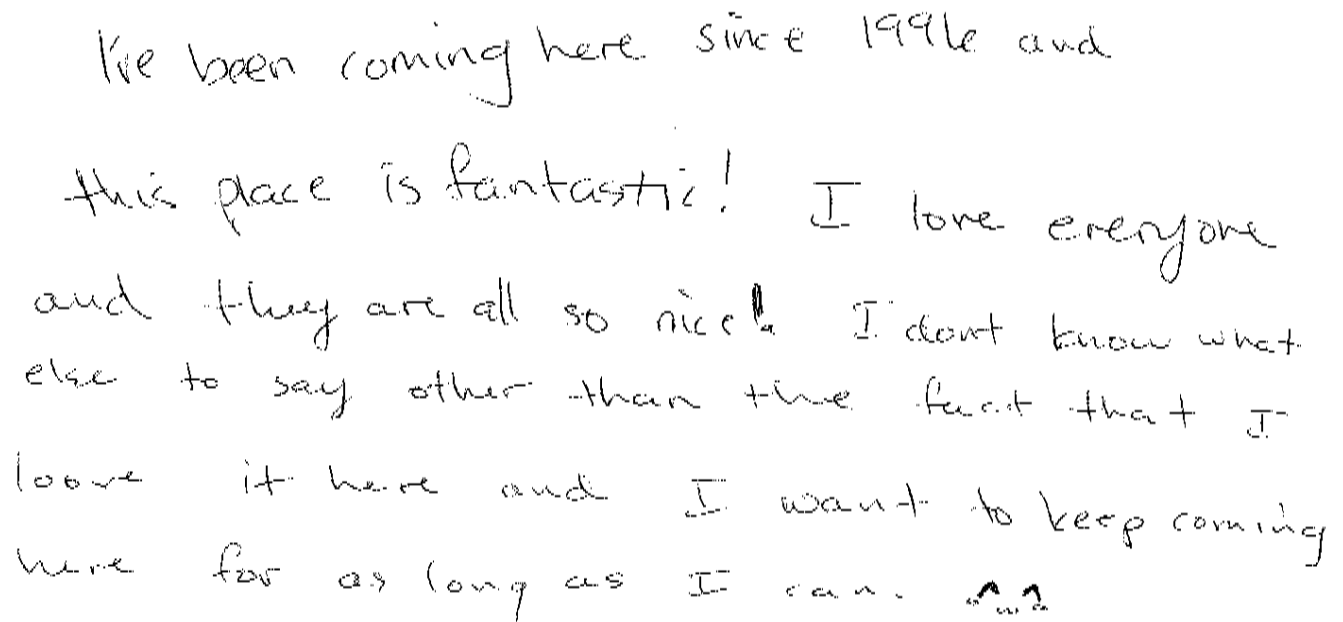 I've been coming here since 1996 and
this place is fantastic! I love everyone
and they are all so nice! I dont know what
else to say other than the fact that I
loove it here and I want to keep coming
here for as long as I can. ^w^